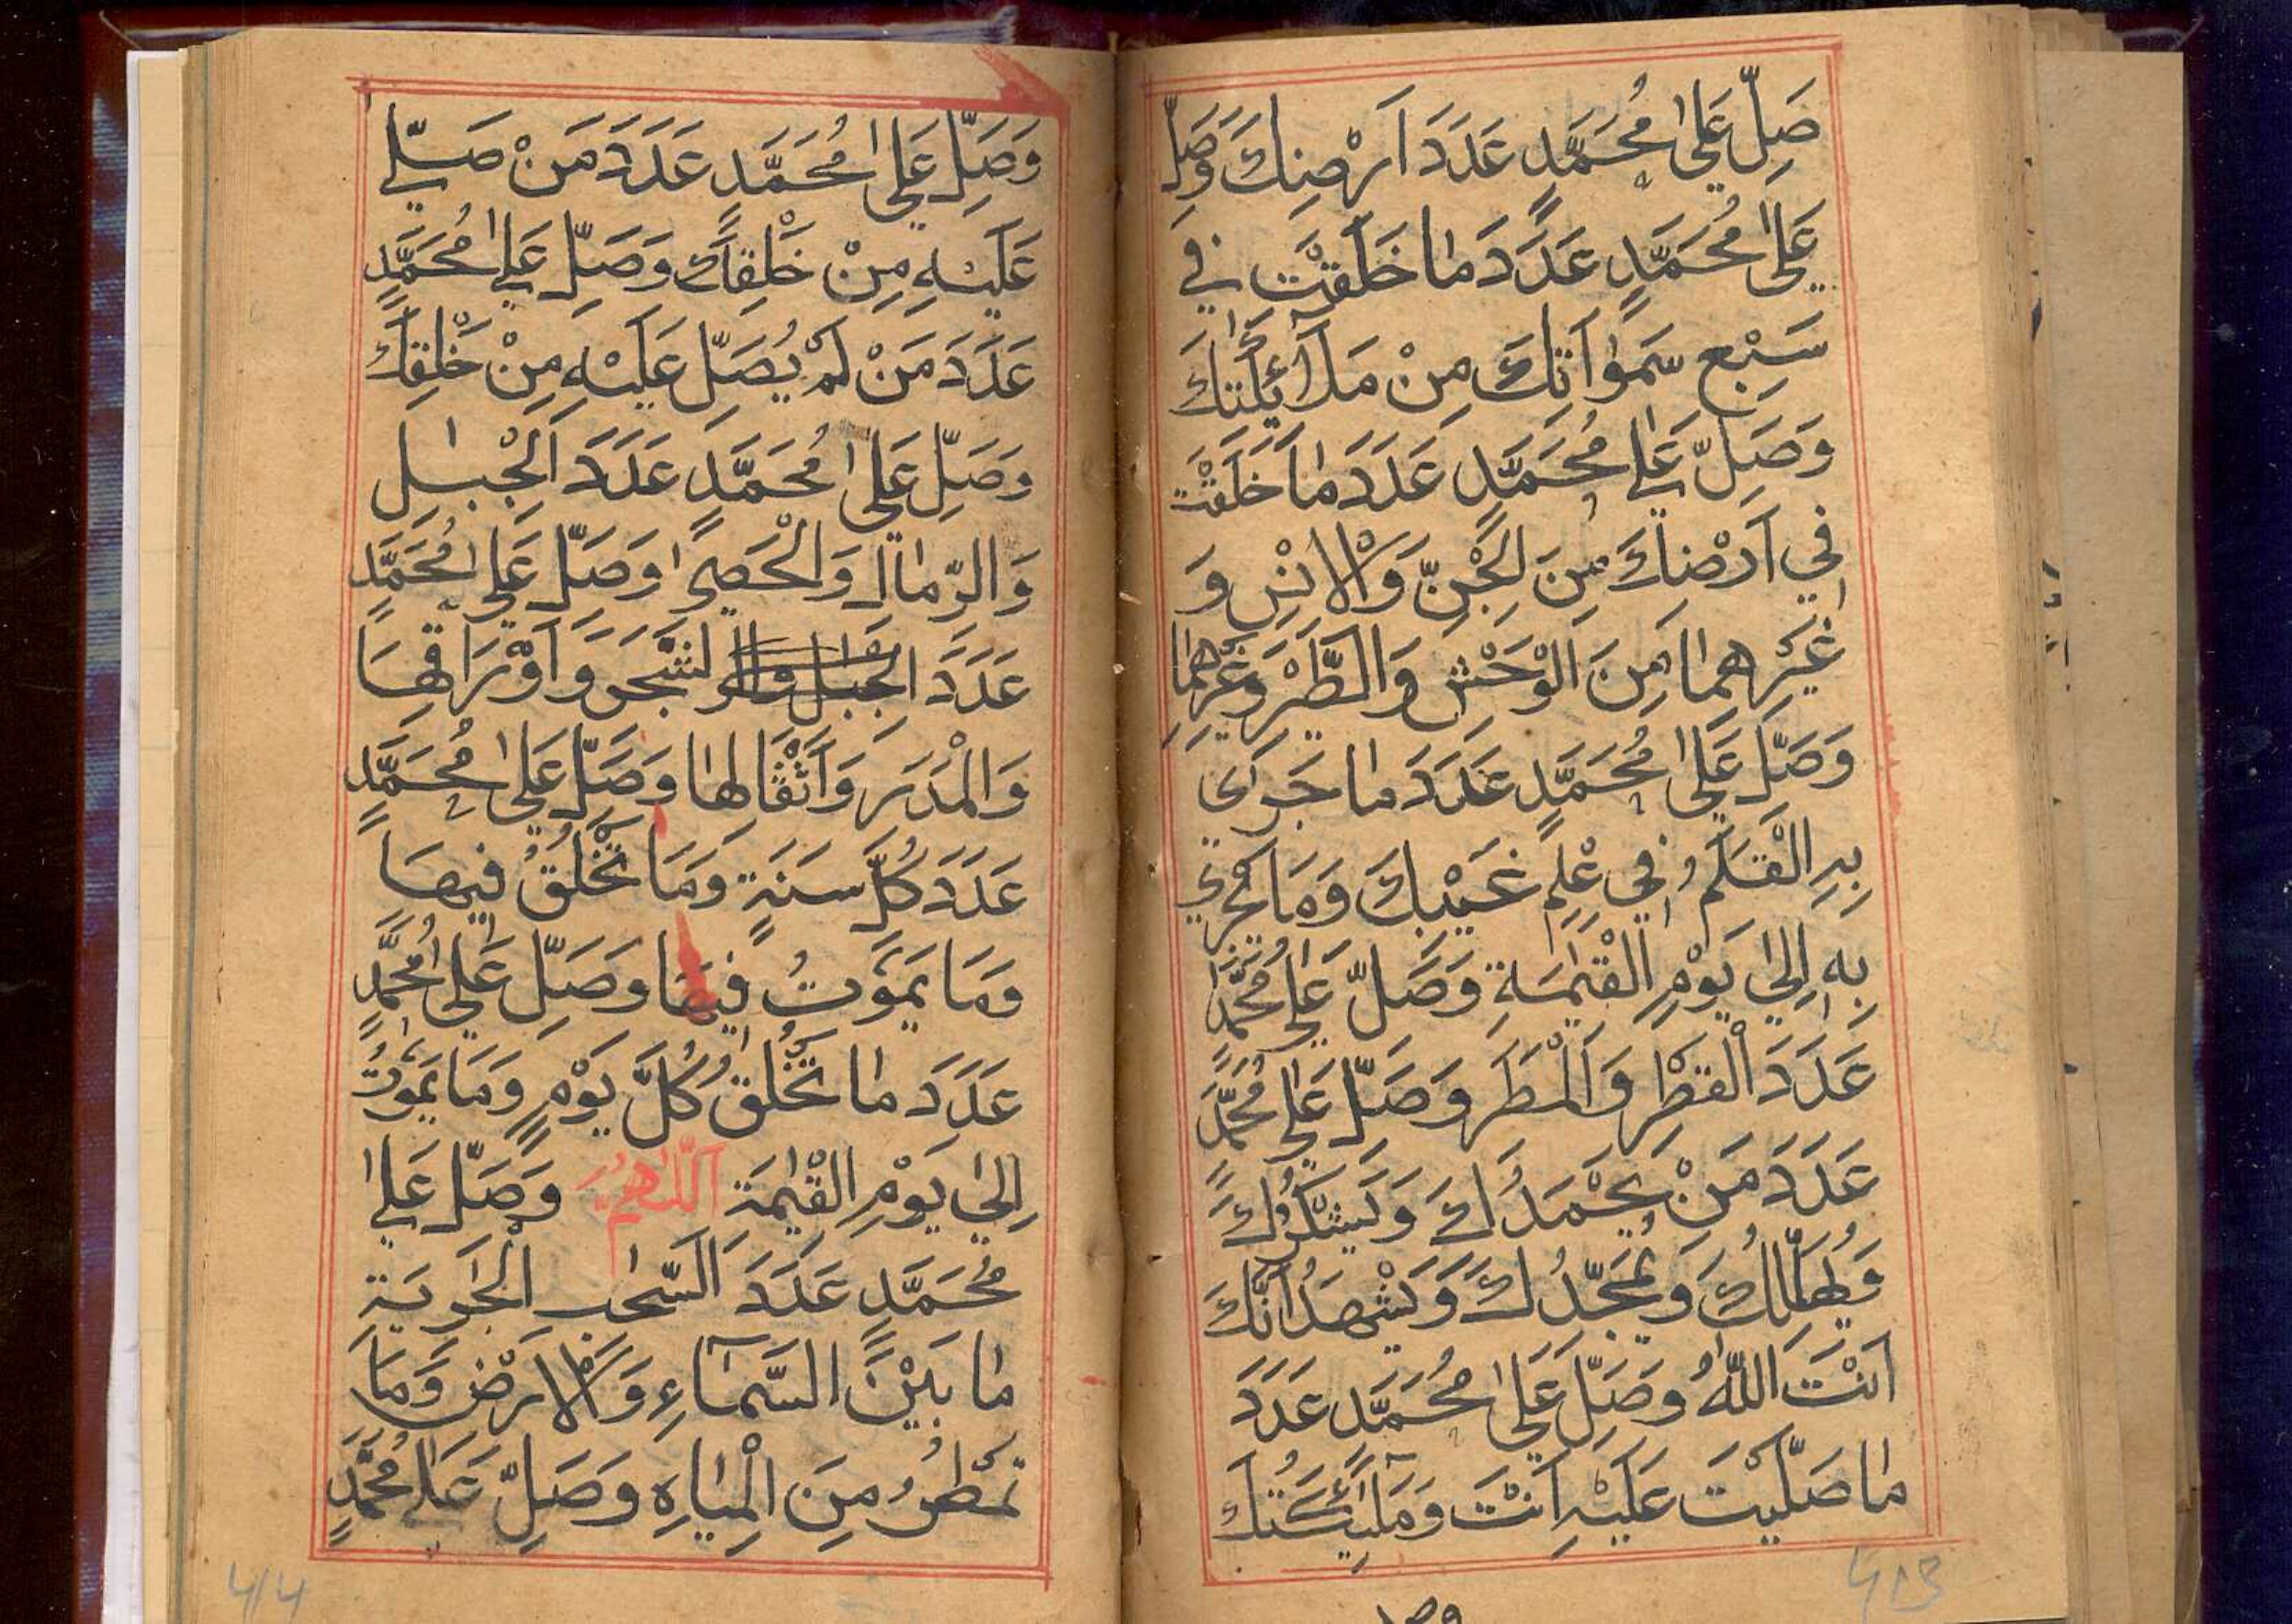 صَلِّ عَلىٰ مُحَمَّدٍ عَدَدَ اَرْضِكَ وَصَلِّ
عَلىٰ مُحَمَّدٍ عَدَدَ مٰا خَلَقْتَ فِي
سَبْعِ سَمٰوٰاتِكَ مِنْ مَلٰٓائِكَتِكَ
وَصَلِّ عَلىٰ مُحَمَّدٍ عَدَدَ مٰا خَلَقْتَ
فِي اَرْضِكَ مِنَ الْجِنِّ وَالْاِنْسِ وَ
غَيْرِهِمٰا مِنَ الْوَحْشِ وَالطَّيْرِ وَغَيْرِهِمٰا
وَصَلِّ عَلىٰ مُحَمَّدٍ عَدَدَ مٰا جَرٰى
بِهِ الْقَلَمُ فِي عِلْمِ غَيْبِكَ وَمَا يَجْرِي
بِهِ اِلىٰ يَوْمِ الْقِيٰمَةِ وَصَلِّ عَلىٰ مُحَمَّدٍ
عَدَدَ الْقَطْرِ وَالْمَطَرِ وَصَلِّ عَلىٰ مُحَمَّدٍ
عَدَدَ مَنْ يَحْمَدُكَ وَيَشْكُرُكَ
وَيُهَلِّلُكَ وَيُمَجِّدُكَ وَيَشْهَدُ اَنَّكَ
اَنْتَ اللّٰهُ وَصَلِّ عَلىٰ مُحَمَّدٍ عَدَدَ
مٰا صَلَّيْتَ عَلَيْهِ اَنْتَ وَمَلٰٓئِكَتُكَ
وصل
413
وَصَلِّ عَلىٰ مُحَمَّدٍ عَدَدَ مَنْ صَلّىٰ
عَلَيْهِ مِنْ خَلْقِكَ وَصَلِّ عَلىٰ مُحَمَّدٍ
عَدَدَ مَنْ لَمْ يُصَلِّ عَلَيْهِ مِنْ خَلْقِكَ
وَصَلِّ عَلىٰ مُحَمَّدٍ عَدَدَ الْجِبٰلِ
وَالرِّمٰالِ وَالْحَصىٰ وَصَلِّ عَلىٰ مُحَمَّدٍ
عَدَدَ الجبال والر لشَّجَرِ وَاَوْرَاقِهَا
وَالْمَدَرِ وَاَثْقَالِهٰا وَصَلِّ عَلىٰ مُحَمَّدٍ
عَدَدَ كُلِّ سَنَةٍ وَمَا تَخْلُقُ فِيهَا
وَمَا يَمُوتُ فِيهَا وَصَلِّ عَلىٰ مُحَمَّدٍ
عَدَدَ مٰا تَخْلُقُ كُلَّ يَوْمٍ وَمَا يَمُوتُ
اِلىٰ يَوْمِ الْقِيٰمَةِ اَللّٰهُمَّ وَصَلِّ عَلىٰ
مُحَمَّدٍ عَدَدَ السَّحٰبِ الْجَارِيَةِ
مٰا بَيْنَ السَّمَآءِ وَالْاَرْضِ وَمَا
تَمْطُرُ مِنَ الْمِيٰاهِ وَصَلِّ عَلىٰ مُحَمَّدٍ
414